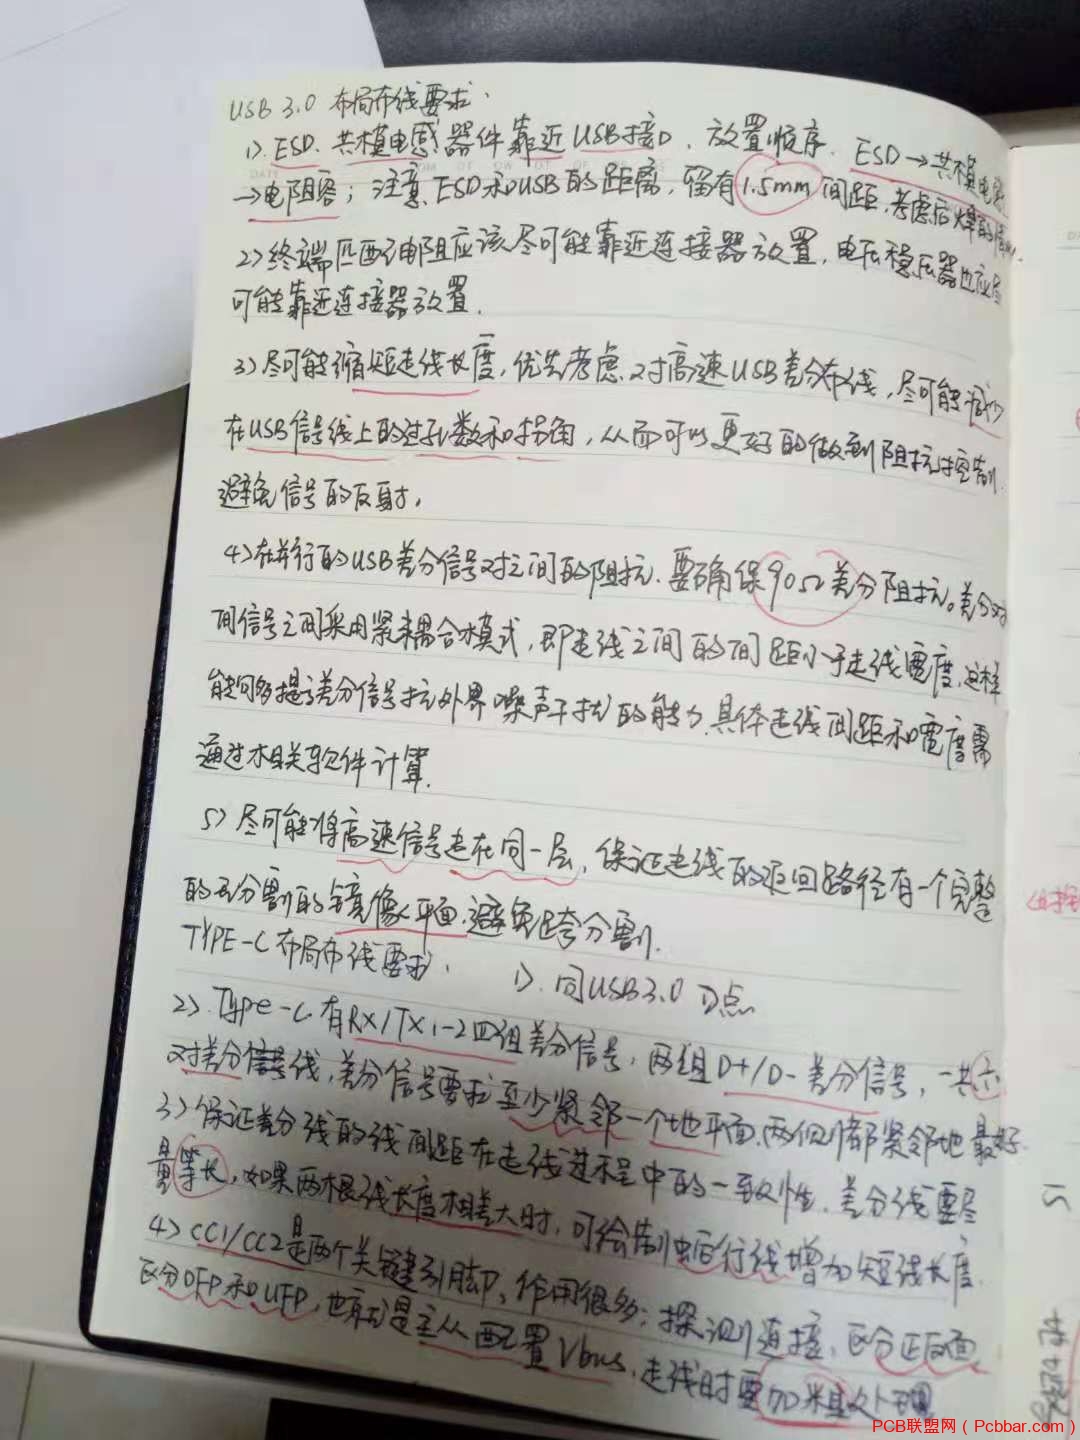 USB 3.0 布局布线要求.
1). ESD、共模电感器件靠近USB接口、放置顺序、ESD→共模电感
→电阻容；注意ESD和USB的距离，留有1.5mm间距，考虑后焊的情况.
2>终端匹配电阻应该尽可能靠近连接器放置，电压稳压器也应尽
可能靠近连接器放置.
3>尽可能缩短走线长度，优先考虑对高速USB差分布线，尽可能减少
在USB信号线上的过孔数和拐角，从而可以更好的做到阻抗控制
避免信号的反射，
4>在并行的USB差分信号对之间的阻抗、要确保90Ω差分阻抗。差分对
间信号之间采用紧耦合模式，即走线之间的间距小于走线宽度，这样
能够提高差分信号抗外界噪声干扰的能力，具体走线间距和宽度需
通过相关软件计算.
5> 尽可能将高速信号走在同一层，保证走线的返回路径有一个完整
的无分割的镜像平面.避免跨分割.
TYPE-C布局布线要求、 1>.同USB3.0 1)点
2>.Type-C有RX/TX1-2四组差分信号，两组D+/D-差分信号，一共六
对差分信号线，差分信号要求至少紧邻一个地平面，两侧都紧邻地最好.
3>保证差分线的线间距在走线过程中的一致性，差分线要尽
量等长，如果两根线长度相差大时，可绘制蛇行线增加短线长度
4>CC1/CC2是两个关键引脚、作用很多：探测连接，区分正反面
区分DFP和UFP，也就是主从配置Vbus，走线时要加粗处理
PCB联盟网（Pcbbar.com）